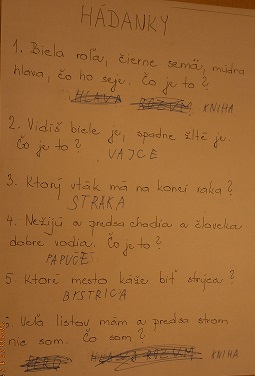 HÁDANKY
1. Biela roľa, čierne semä, múdra
hlava, čo ho seje. Čo je to?
HLAVA ROZUM KNIHA
2. Vidíš biele je, spadne žlté je.
Čo je to? VAJCE
3. Ktorý vták má na konci raka?
STRAKA
4. Nežijú a predsa chodia a človeka
dobre vodia. Čo je to?
PAPUČE
5. Ktoré mesto káže biť strýca?
BYSTRICA
6. Veľa listov mám a predsa strom
nie som. Čo som?
ROZUM KNIHA